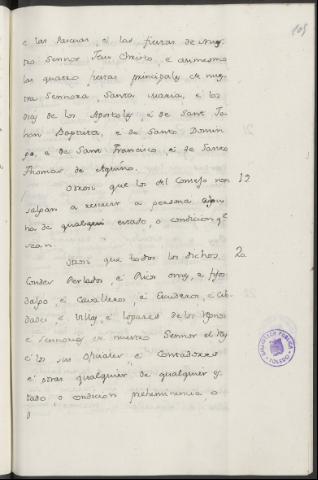 105
e las Pascuas, e las fiestas de nues
tro Sennor Jesu Christo, e asimesmo
las quatro fiestas principales de nues
tra Sennora, Santa Maria, e los
dias de los Apostoles, e de Sant Jo
han Baptista, e de Santo Domin
go, e de Sant Francisco, e de Santo
Thomas de Aquino.
Otrosi que los del Consejo non 19
salgan a rescevir a persona
de qualquier estado, o condicion q.e
sean.
Iten que todos los dichos 20
Condes Perlados, e Ricos omes, e fijos
dalgo, e Cavalleros, e Escuderos, e Cib
dades e Villas, e Logares de los Regnos
e Sennorios de nuestro Sennor el Rey
e los sus Oficiales, e Contadores
e otras qualquier de qualquier es
tado, o condicion preheminencia, o
BIBLIOTECA PUBLICA
TOLEDO